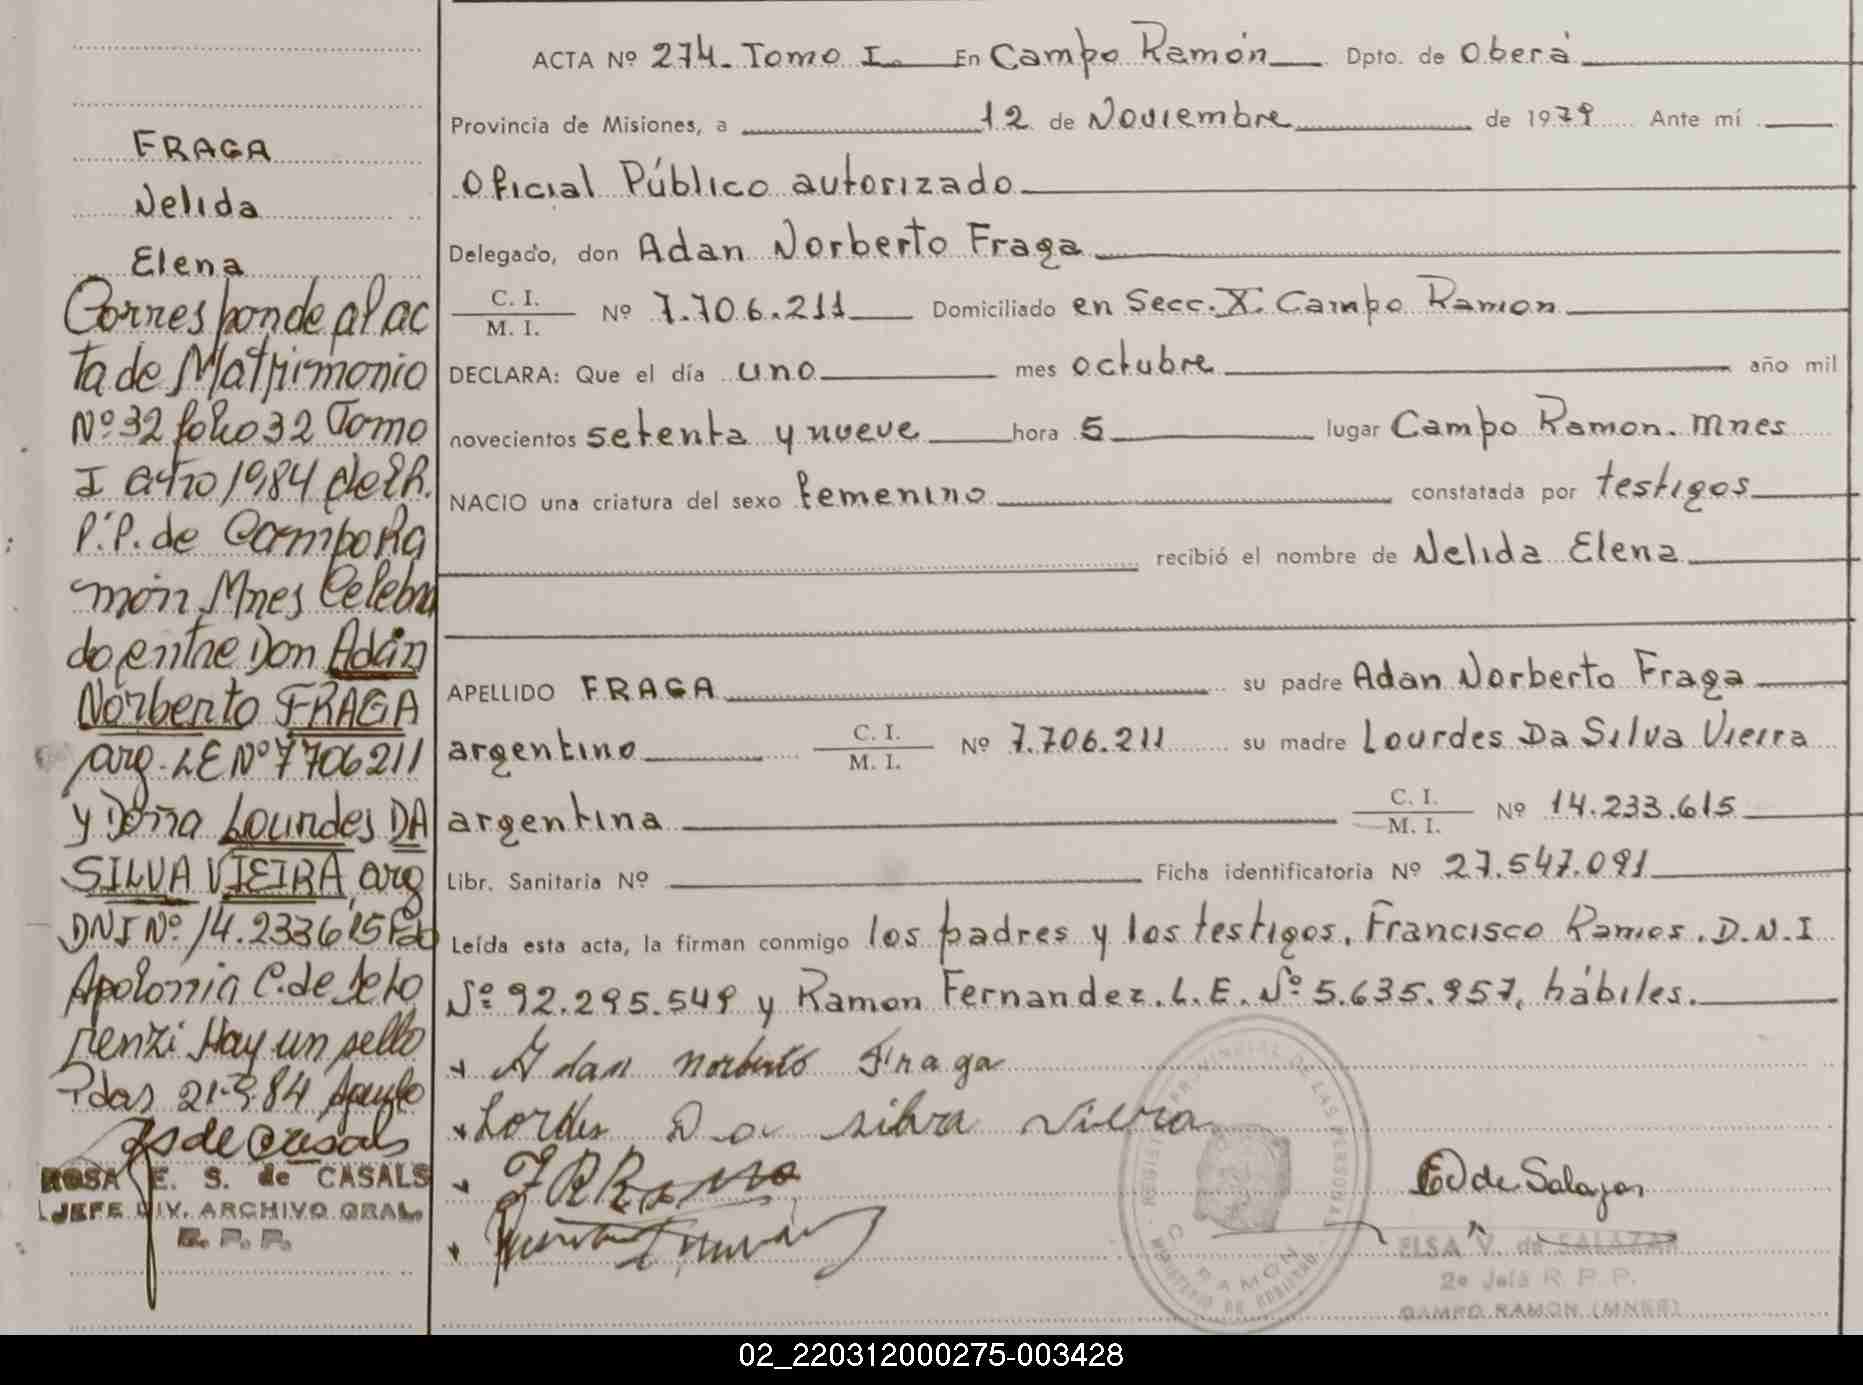 FRAGA
Nelida
Elena
Corresponde al ac
ta de Matrimonio
Nº 32 folio 32 Tomo
I año 1984 del R.
P.P. de Campo Ra
món Mnes Celebra
do entre Don Adán
Norberto FRAGA
arg. LE Nº 7706211
y Doña Lourdes DA
SILVA VIEIRA, arg
DNI Nº 14.233615 Fdo
Apolonia C. de
Hay un sello
Pdas 21-3-84
ROSA E. S. de CASALS
JEFE DIV. ARCHIVO GRAL.
R. P. P.
ACTA Nº 274. Tomo I. En Campo Ramón Dpto. de Oberá
Provincia de Misiones, a 12 de Noviembre de 1979 Ante mí
Oficial Público autorizado
Delegado, don Adan Norberto Fraga
C. I.
M. I. Nº 7.706.211 Domiciliado en Secc. X. Campo Ramon
DECLARA: Que el día uno mes octubre año mil
novecientos setenta y nueve hora 5 lugar Campo Ramon. Mnes
NACIO una criatura del sexo femenino constatada por testigos
recibió el nombre de Nelida Elena
APELLIDO FRAGA su padre Adan Norberto Fraga
argentino C. I.
M. I. Nº 7.706.211 su madre Lourdes Da Silva Vieira
argentina C. I.
M. I. Nº 14.233.615
Libr. Sanitaria Nº Ficha identificatoria Nº 27.547.091
Leída esta acta, la firman conmigo los padres y los testigos, Francisco Ramos. D.N.I
Nº 92.295.549 y Ramon Fernandez. L.E. Nº 5.635.957, hábiles.
Adan Norberto Fraga
Lordes Da silva Vieira
REGISTRO PROVINCIAL DE LAS PERSONAS
C. RAMON
MINISTERIO DE GOBIERNO
E V de Salazar
ELSA V. de SALAZAR
2º Jefa R. P. P.
CAMPO RAMON (MNES)
02_220312000275-003428